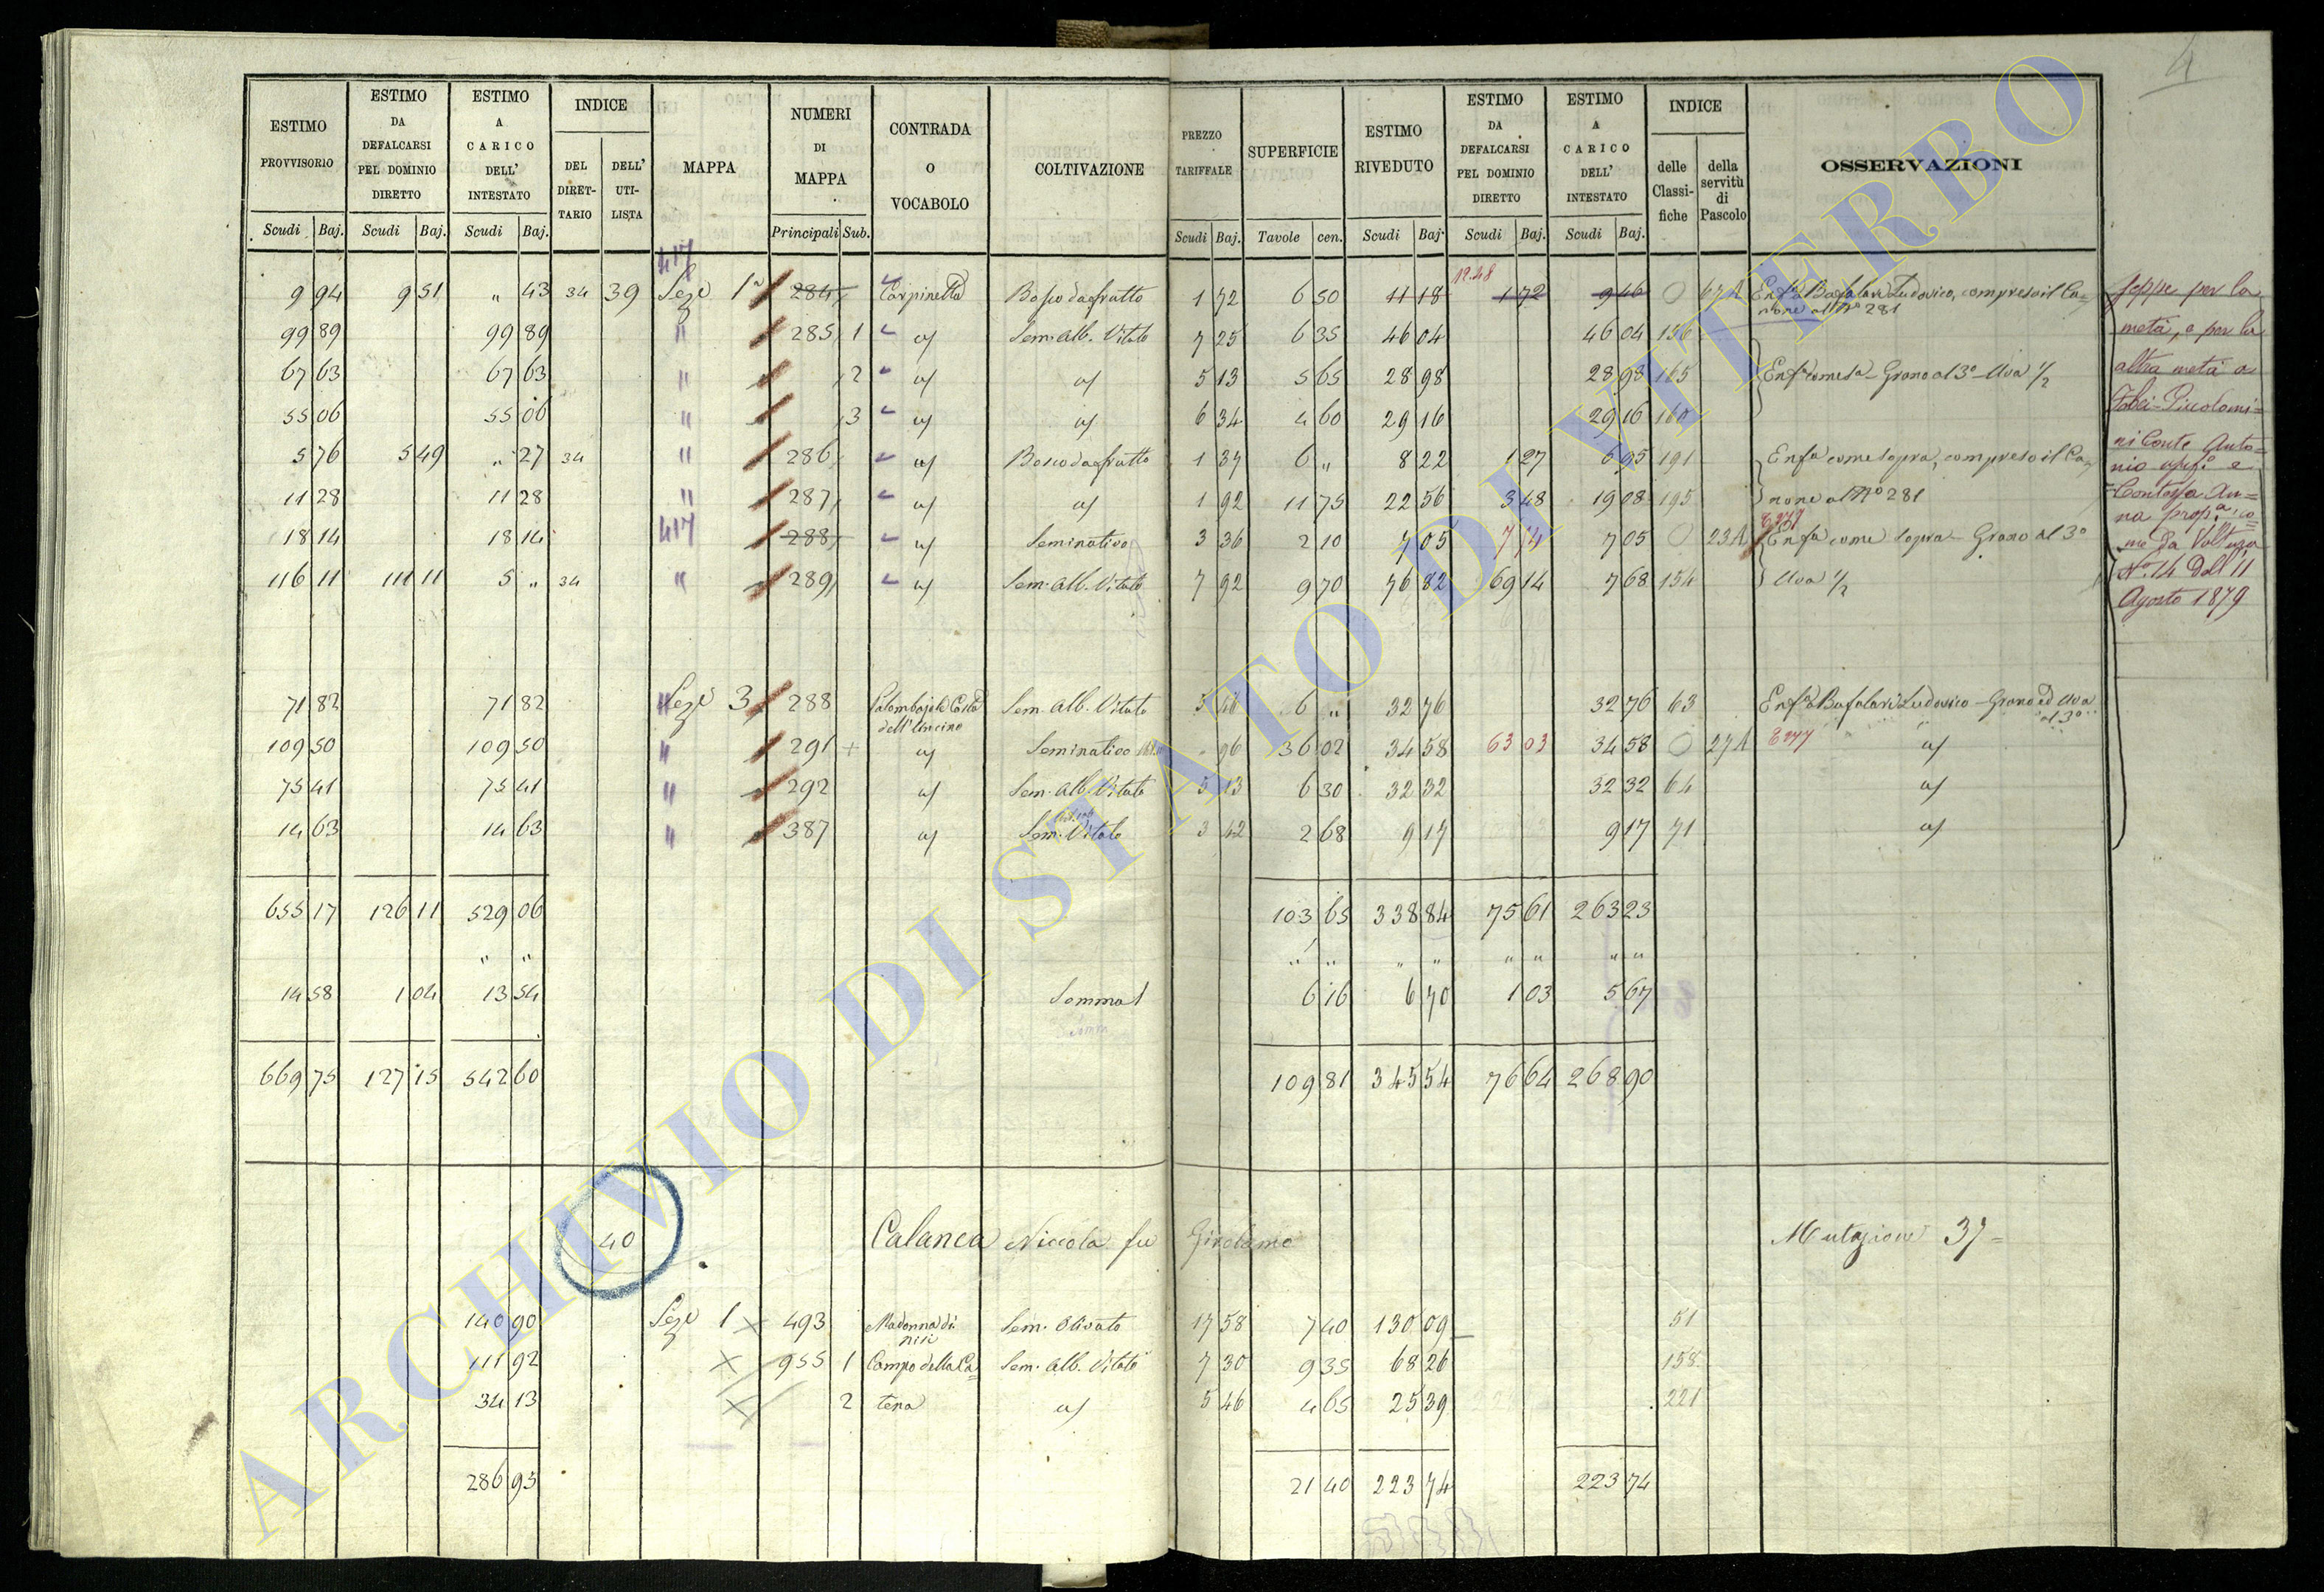 4
ESTIMO PROVVISORIO
ESTIMO DA DEFALCARSI PEL DOMINIO DIRETTO
ESTIMO A CARICO DELL' INTESTATO
INDICE
DEL DIRET-TARIO
DELL' UTI-LISTA
MAPPA
NUMERI DI MAPPA
CONTRADA O VOCABOLO
COLTIVAZIONE
PREZZO TARIFFALE
SUPERFICIE
ESTIMO RIVEDUTO
ESTIMO DA DEFALCARSI PEL DOMINIO DIRETTO
ESTIMO A CARICO DELL' INTESTATO
INDICE
delle Classi-fiche
della servitù di Pascolo
OSSERVAZIONI
Scudi Baj. Scudi Baj. Scudi Baj. Principali Sub. Scudi Baj. Tavole cen. Scudi Baj. Scudi Baj. Scudi Baj.
417 12.48
9 94 9 51 " 43 34 39 Seze 1a 284 Carpinetta Bosco da frutto 1 72 6 50 11 18 1 72 9 46 0 67A Enfa Bufalari Ludovico, compreso il Ca=
none al No 281
99 89 99 89 " 285 1 a/ Sem. Alb. Vitato 7 25 6 35 46 04 46 04 156
67 63 67 63 " 2 a/ a/ 5 13 5 65 28 98 28 98 165 Enfa come sa Grano al 3o Uva 1/2
55 06 55 06 " 3 a/ a/ 6 34 4 60 29 16 29 16 160
5 76 5 49 " 27 34 " 286 a/ Bosco da frutto 1 37 6 " 8 22 1 27 6 95 191 Enfa come sopra, compreso il Ca=
11 28 11 28 " 287 a/ a/ 1 92 11 75 22 56 3 48 19 08 195 none al No 281
18 14 18 14 417 288 a/ Seminativo 3 36 2 10 7 05 7 05 0 23A Enfa come sopra Grano al 3o
116 11 111 11 5 " 34 " 289 a/ Sem. Alb. Vitato 7 92 9 70 76 82 69 14 7 68 154 Uva 1/2
Jeppe per la
metà, e per la
altra metà a
Febei-Piccolomi=
ni Conte Anto=
nio usufo e
Contessa An=
na propa, co=
me da Voltura
No 14 del 11
Agosto 1879
71 82 71 82 Seze 3 288 Palombajola Costa Sem. Alb. Vitato 5 46 6 " 32 76 32 76 63 Enfa Bufalari Ludovico Grano ed Uva
dell' al 3o
109 50 109 50 " 291 + a/ Seminativo 96 36 02 34 58 63 03 34 58 0 27A E277 a/
75 41 75 41 " 292 a/ Sem. Alb. Vitato 5 13 6 30 32 32 32 32 64 a/
14 63 14 63 " 387 a/ Sem. Vitato 3 42 2 68 9 17 9 17 71 a/
655 17 126 11 529 06 103 65 338 84 75 61 263 23
" " " " " " " " " "
14 58 1 04 13 54 Somma 6 16 6 70 1 03 5 67
669 75 127 15 542 60 109 81 345 54 76 64 268 90
40 Calanca Niccola fu Girolamo Mutazione 37=
140 90 Seze 1 493 Madonna di Sem. Olivato 17 58 7 40 130 09 51
111 92 955 1 Campo della Ca= Sem. Alb. Vitato 7 30 9 35 68 26 158
34 13 2 tena a/ 5 46 4 65 25 39 221
286 95 21 40 223 74 223 74
ARCHIVIO DI STATO DI VITERBO